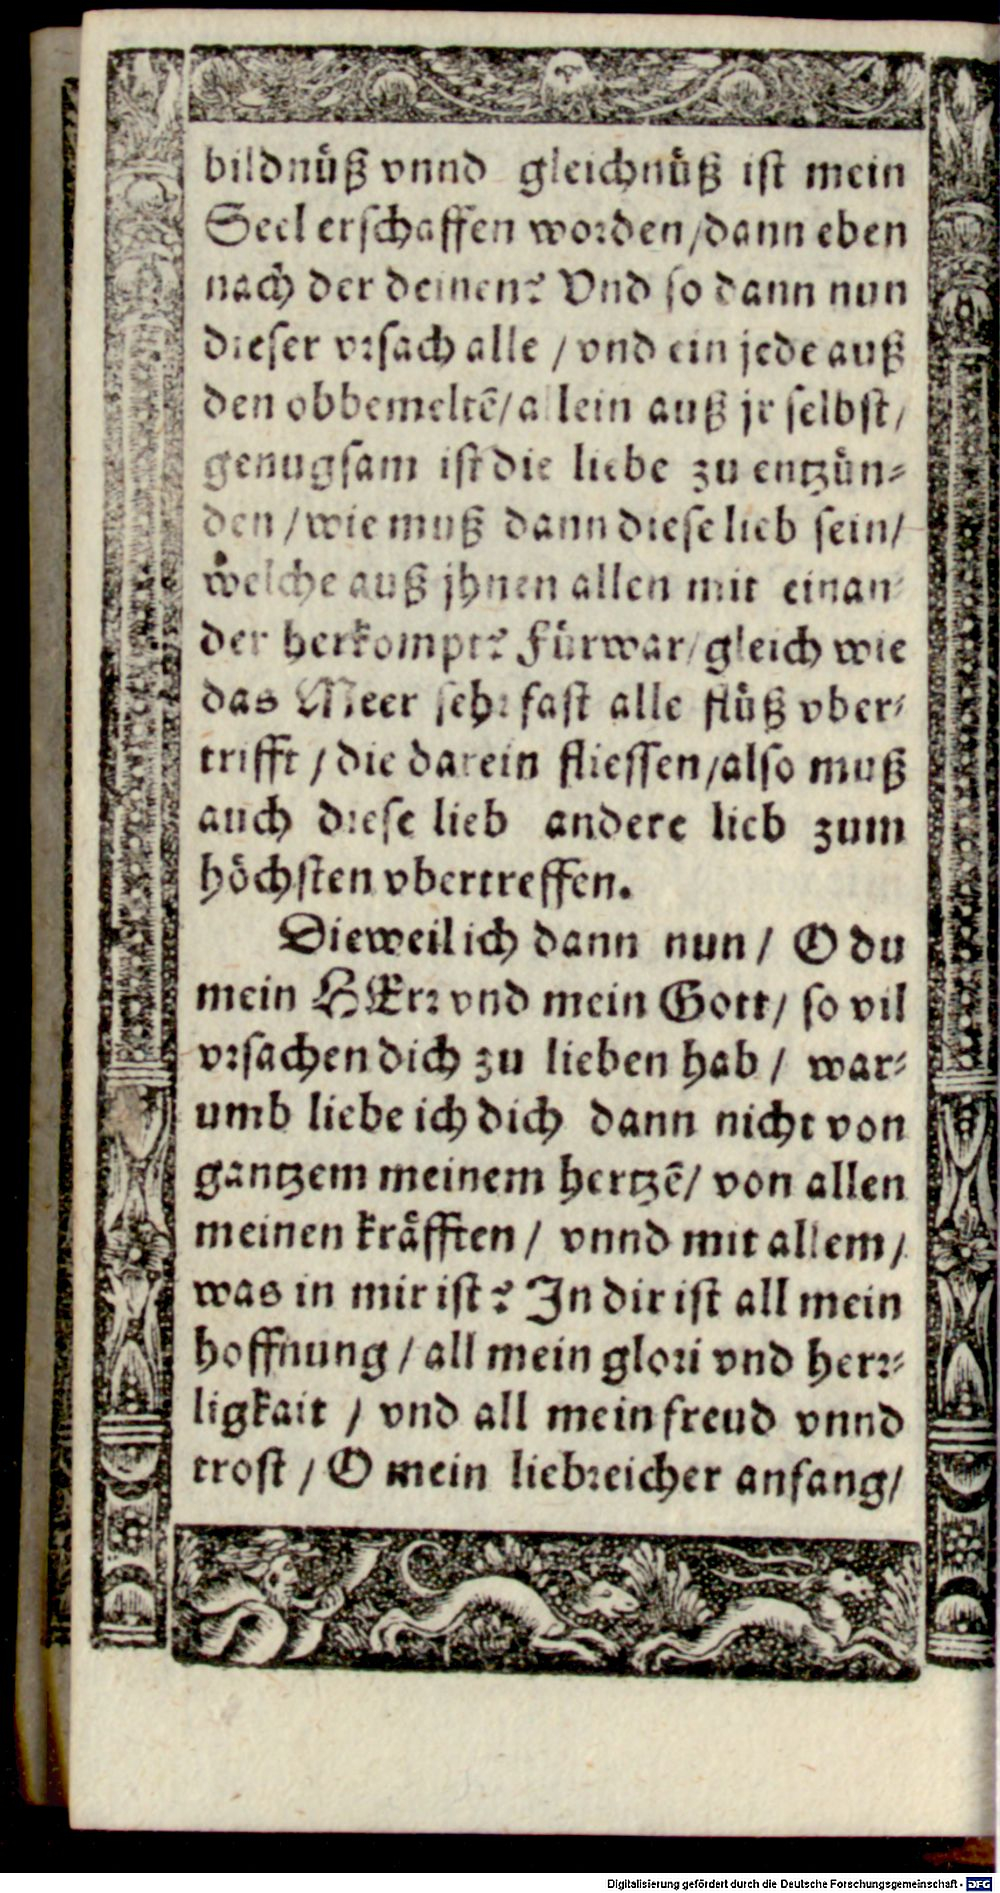 bildnüß vnnd gleichnüß ist mein
Seel erschaffen worden/dann eben
nach der deinen? Vnd so dann nun
dieser vrsach alle / vnd ein jede auß
den obbemeltē/allein auß jr selbst/
genugsam ist die liebe zu entzün-
den / wie muß dann diese lieb sein/
welche auß jhnen allen mit einan-
der herkompt? Fürwar/gleich wie
das Meer sehr fast alle flüß vber-
trifft / die darein fliessen/also muß
auch diese lieb andere lieb zum
höchsten vbertreffen.
Dieweil ich dann nun / O du
mein HErr vnd mein Gott/ so vil
vrsachen dich zu lieben hab / war-
umb liebe ich dich dann nicht von
gantzem meinem hertzē/ von allen
meinen kräfften / vnnd mit allem/
was in mir ist? In dir ist all mein
hoffnung / all mein glori vnd herr-
ligkait / vnd all mein freud vnnd
trost / O mein liebreicher anfang/
Digitalisierung gefördert durch die Deutsche Forschungsgemeinschaft - DFG